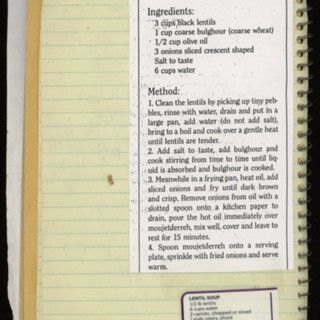 Ingredients:
3 cups black lentils
1 cup coarse bulghour (coarse wheat)
1/2 cup olive oil
3 onions sliced crescent shaped
Salt to taste
6 cups water
Method:
1. Clean the lentils by picking up tiny peb-
bles, rinse with water, drain and put in a
large pan, add water (do not add salt),
bring to a boil and cook over a gentle heat
until lentils are tender.
2. Add salt to taste, add bulghour and
cook stirring from time to time until liq-
uid is absorbed and bulghour is cooked.
3. Meanwhile in a frying pan, heat oil, add
sliced onions and fry until dark brown
and crisp, Remove onions from oil with a
slotted spoon onto a kitchen paper to
drain, pour the hot oil immediately over
moujetderreh, mix well, cover and leave to
rest for 15 minutes.
4. Spoon moujetderreh onto a serving
plate, sprinkle with fried onions and serve
warm.
LENTIL SOUP
1/2 lb lentils
6 cups water
2 carrots, chopped or sliced
1 stalk celery, sliced